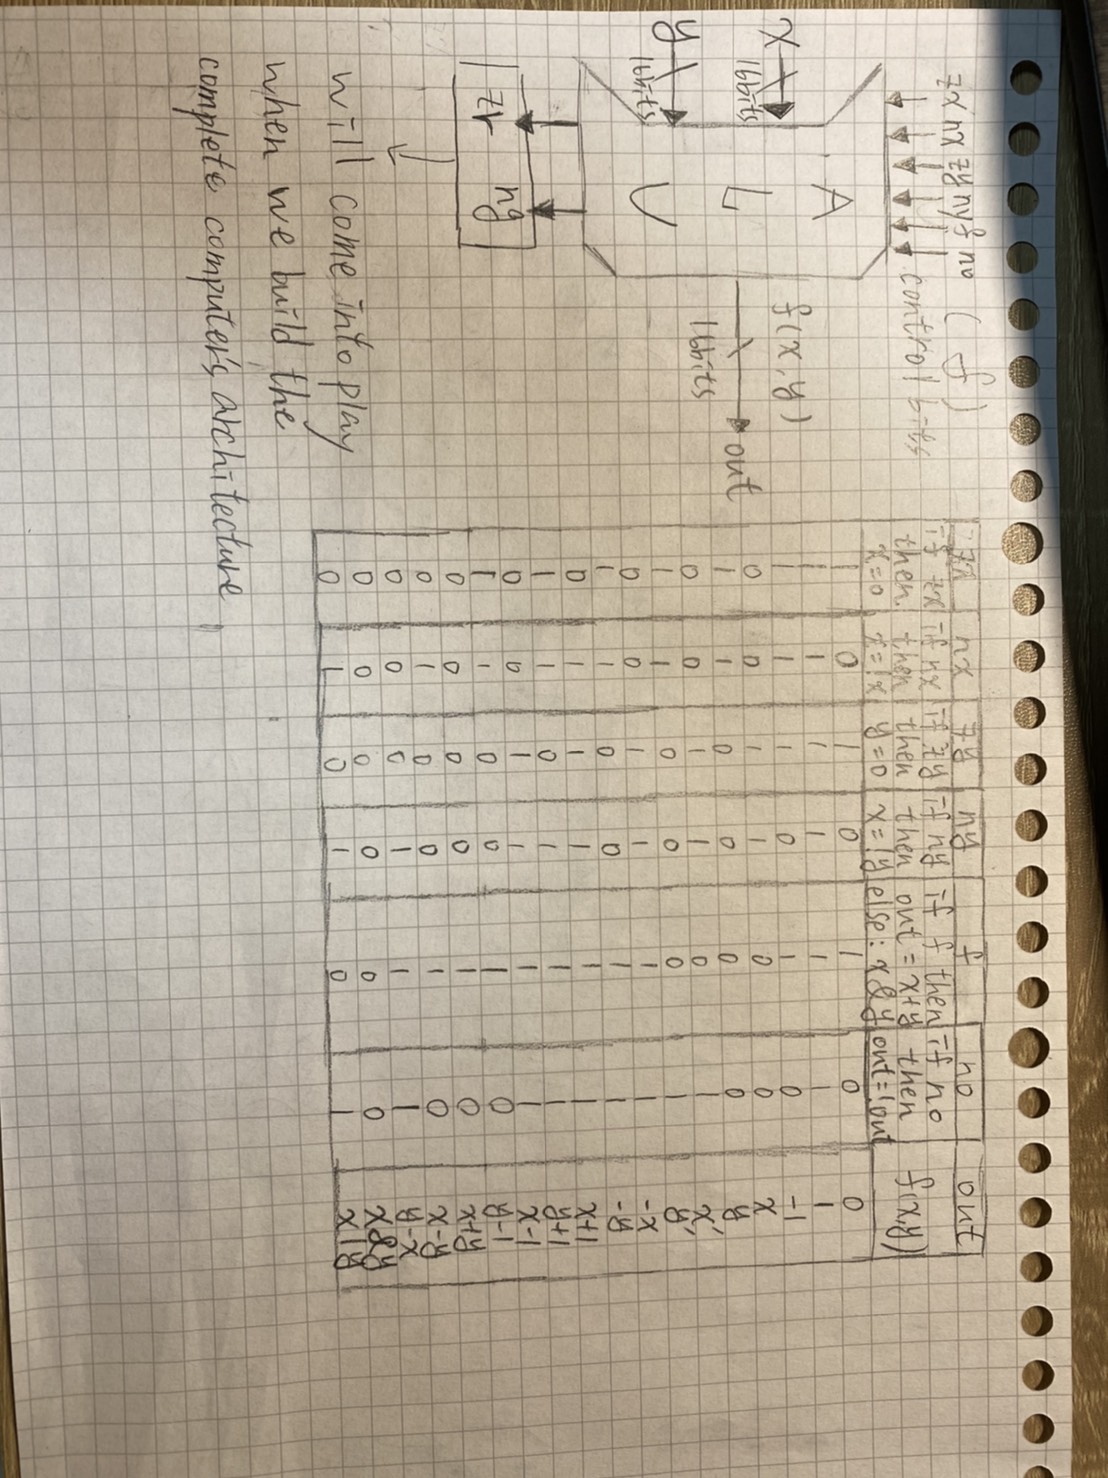 zx nx zy ny f no ( f )
control bits
A
L
U
x
16bits
y
16bits
f(x,y)
out
16bits
zr ng
will come into play
when we build the
complete computer's architecture
zx nx zy ny f no out
if zx if nx if zy if ny if f then if no
then then then then out = x+y then f(x,y)
x=0 x=!x y=0 x=!y else: x&y out=!out
1 0 1 0 1 0 0
1 1 1 1 1 1 1
1 1 1 0 1 0 -1
0 0 1 1 0 0 x
1 1 0 0 0 0 y
0 0 1 1 0 1 x'
1 1 0 0 0 1 y'
0 0 1 1 1 1 -x
1 1 0 0 1 1 -y
0 1 1 1 1 1 x+1
1 1 0 1 1 1 y+1
0 0 1 1 1 1 x-1
1 1 0 0 1 0 y-1
0 0 0 0 1 0 x+y
0 1 0 0 1 0 x-y
0 0 0 1 1 1 y-x
0 0 0 0 0 0 x&y
0 1 0 1 0 1 x|y